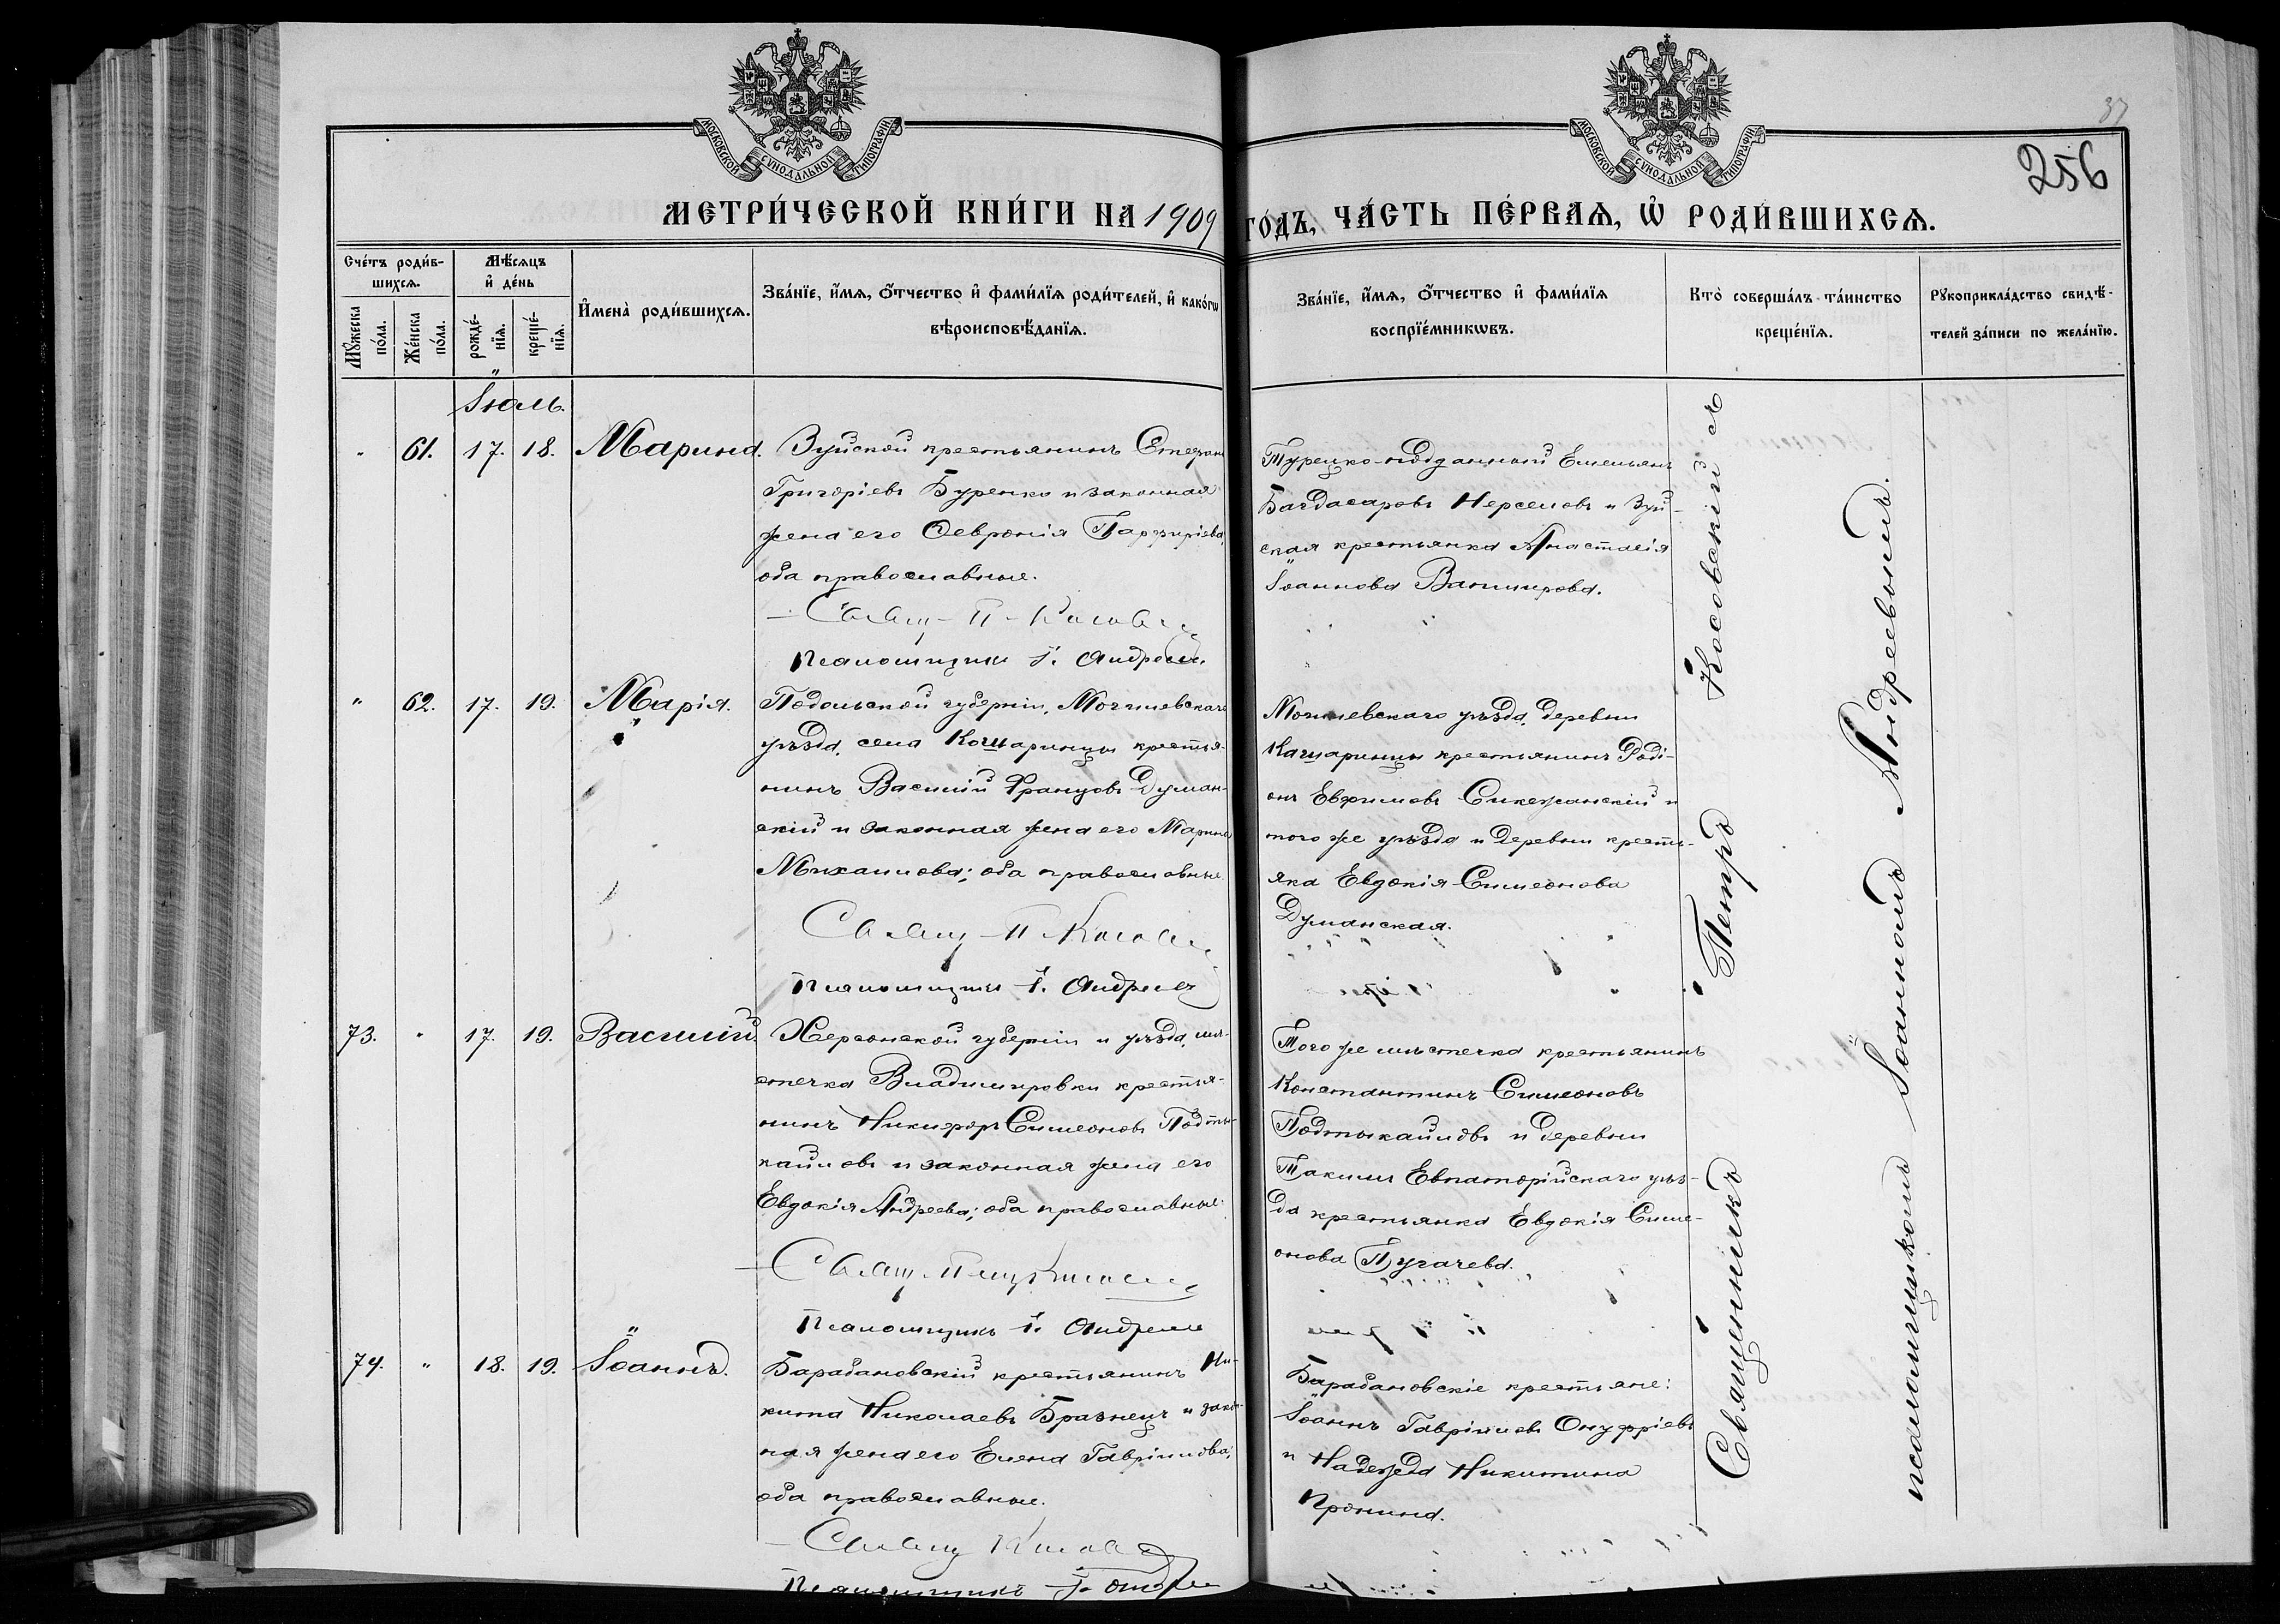 37
256
МОСКОВСКОЙ СѴНОДАЛЬНОЙ ТИПОГРАФІИ
МОСКОВСКОЙ СѴНОДАЛЬНОЙ ТИПОГРАФІИ
МЕТРИ́ЧЕСКОЙ КНИ́ГИ НА 1909 ГО́ДЪ, ЧА́СТЬ ПЕ́РВАѦ, Ѡ҆ РОДИ́ВШИХСѦ.
Сче́тъ роди́в-
шихсѧ.
Мꙋ́жеска по́ла.
Же́нска по́ла.
Мѣ́сѧцъ
и҆ де́нь
рожде́-
нїѧ.
креще́-
нїѧ.
И҆мена̀ роди́вшихсѧ.
Зва́нїе, и҆́мѧ, ѻ҆́тчество и҆ фами́лїѧ роди́телей, и҆ како́гѡ
вѣроисповѣ́данїѧ.
Зва́нїе, и҆́мѧ, ѻ҆́тчество и҆ фами́лїѧ
воспрїе́мникѡвъ.
Кто̀ соверша́лъ та́инство
креще́нїѧ.
Рꙋкоприкла́дство свидѣ́-
телей за́писи по жела́нїю.
Іюль.
" 61. 17. 18. Марина.
Зуйской крестьянинъ Стефанъ
Григоріевъ Буренко и законная
жена его Ѳевронія Парфиріева,
оба православные.
Свящ. П. Косовск
Псаломщикъ І. Андреевъ
Турецко-подданный Емельянъ
Багдасаровъ Нерсесовъ и Зуй-
ская крестьянка Анастасія
Іоаннова
" 62. 17. 19. Марія.
Подольской губерніи, Могилевскаго
уѣзда, села крестья-
нинъ Василій Францовъ Думан-
скій и законная жена его Марина
Михаилова; оба православные.
Свящ. П. Косовск
Псаломщикъ І. Андреевъ
Могилевскаго уѣзда, деревни
крестьянинъ Роді-
онъ Евфимовъ и
того же уѣзда и деревни кресть-
яка Евдокія Симеонова
Думанская.
73. " 17. 19. Василій.
Херсонской губерніи и уѣзда, мѣ-
стечка Владимировки крестья-
нинъ Никифоръ Симеоновъ Подты-
кайловъ и законная жена его
Евдокія Андреева; оба православные.
Свящ. Петръ Косовск
Псаломщикъ І. Андреевъ
Того же мѣстечка крестьянинъ
Константинъ Симеоновъ
Подтыкайловъ и деревни
Такилъ Евпаторійскаго уѣз-
да крестьянка Евдокія Симе-
онова Пугачева.
74. " 18. 19. Іоаннъ.
Барабановскій крестьянинъ Ни-
кита Николаевъ Бразнецъ и закон-
ная жена его Елена Гавріилова,
оба православные.
Свящ. Косовск
Псаломщикъ І. Андрее
Барабановскіе крестьяне:
Іоаннъ Гавріиловъ Онуфріевъ
и Надежда Никитина
Пронина.
Священникъ Петръ Косовскій съ
псаломщикомъ Іоанномъ Андреевымъ.